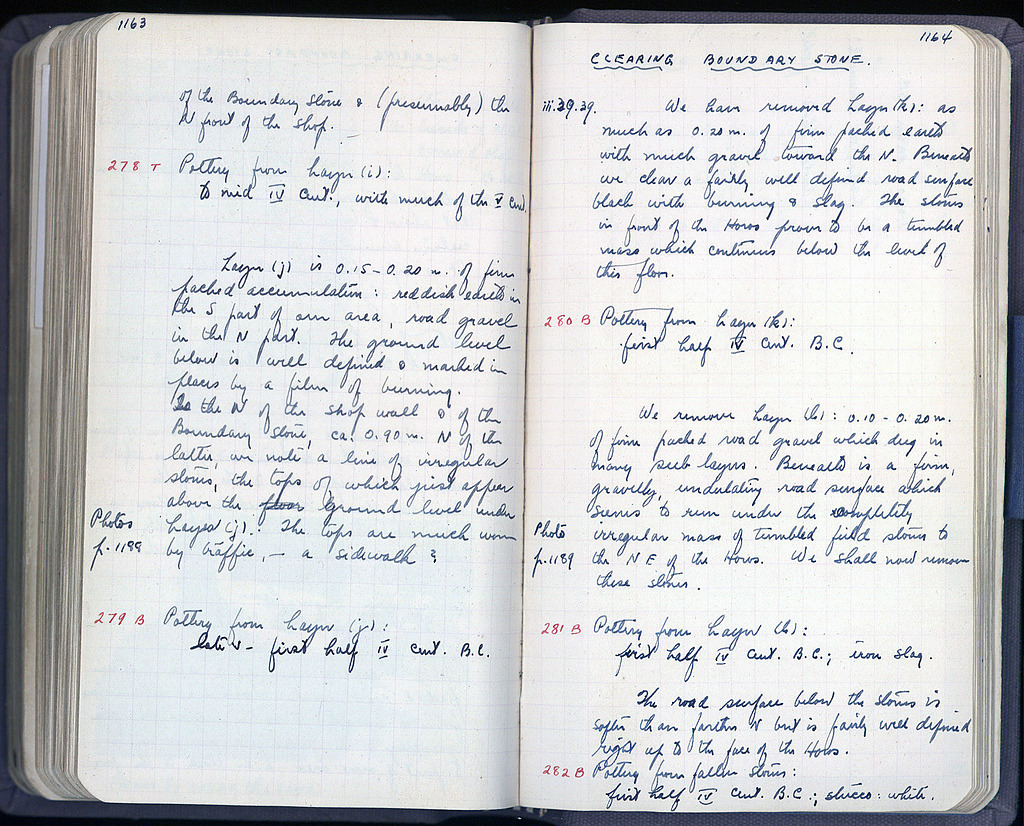 1163
of the Boundary Stone & (presumably) the
N front of the shop.
278 T Pottery from Layer (i):
to mid IV Cent., with much of the V Cent.
Layer (j) is 0.15–0.20 m. of firm
packed accumulation: reddish earth in
the S part of our area, road gravel
in the N part. The ground level
below is well defined & marked in
places by a film of burning.
To the N of the shop wall & of the
Boundary Stone, ca. 0.90 m. N of the
latter, we note a line of irregular
stones, the tops of which just appear
above the floor ground level under
Photos Layer (j). The tops are much worn
p. 1188 by traffic, – a sidewalk?
279 B Pottery from Layer (j):
late V – first half IV Cent. B.C.
1164
CLEARING BOUNDARY STONE.
iii.29.39. We have removed Layer (k): as
much as 0.20 m. of firm packed earth
with much gravel toward the N. Beneath
we clear a fairly well defined road surface
black with burning & slag. The stones
in front of the Horos prove to be a tumbled
mass which continues below the level of
this floor.
280 B Pottery from Layer (k):
first half IV Cent. B.C.
We remove Layer (l): 0.10 – 0.20 m.
of firm packed road gravel which dug in
many sub layers. Beneath is a firm,
gravelly, undulating road surface which
seems to run under the completely
Photo irregular mass of tumbled field stones to
p. 1189 the NE of the Horos. We shall now remove
these stones.
281 B Pottery from Layer (l):
first half IV Cent. B.C.; iron slag.
The road surface below the stones is
softer than farther N but is fairly well defined
right up to the face of the Horos.
282 B Pottery from fallen stones:
first half IV Cent. B.C.; stucco: white.